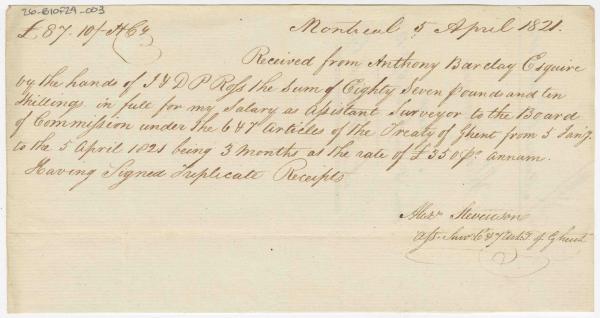 26-B10F29-003
£87. 10/ H Cy Montreal 5 April 1821.
Received from Anthony Barclay Esquire
by the hands of J & D P Ross the Sum of Eighty Seven pound and ten
Shillings in full for my Salary as assistant Surveyor to the Board
of Commission under the 6 & 7 articles of the Treaty of Ghent from 5 Jany.
to the 5 April 1821 being 3 months at the rate of £350 pr. annum.
Having Signed Triplicate Receipts
Alexr Stevenson
Ass. Surv 6 & 7 Arts T. of Ghent